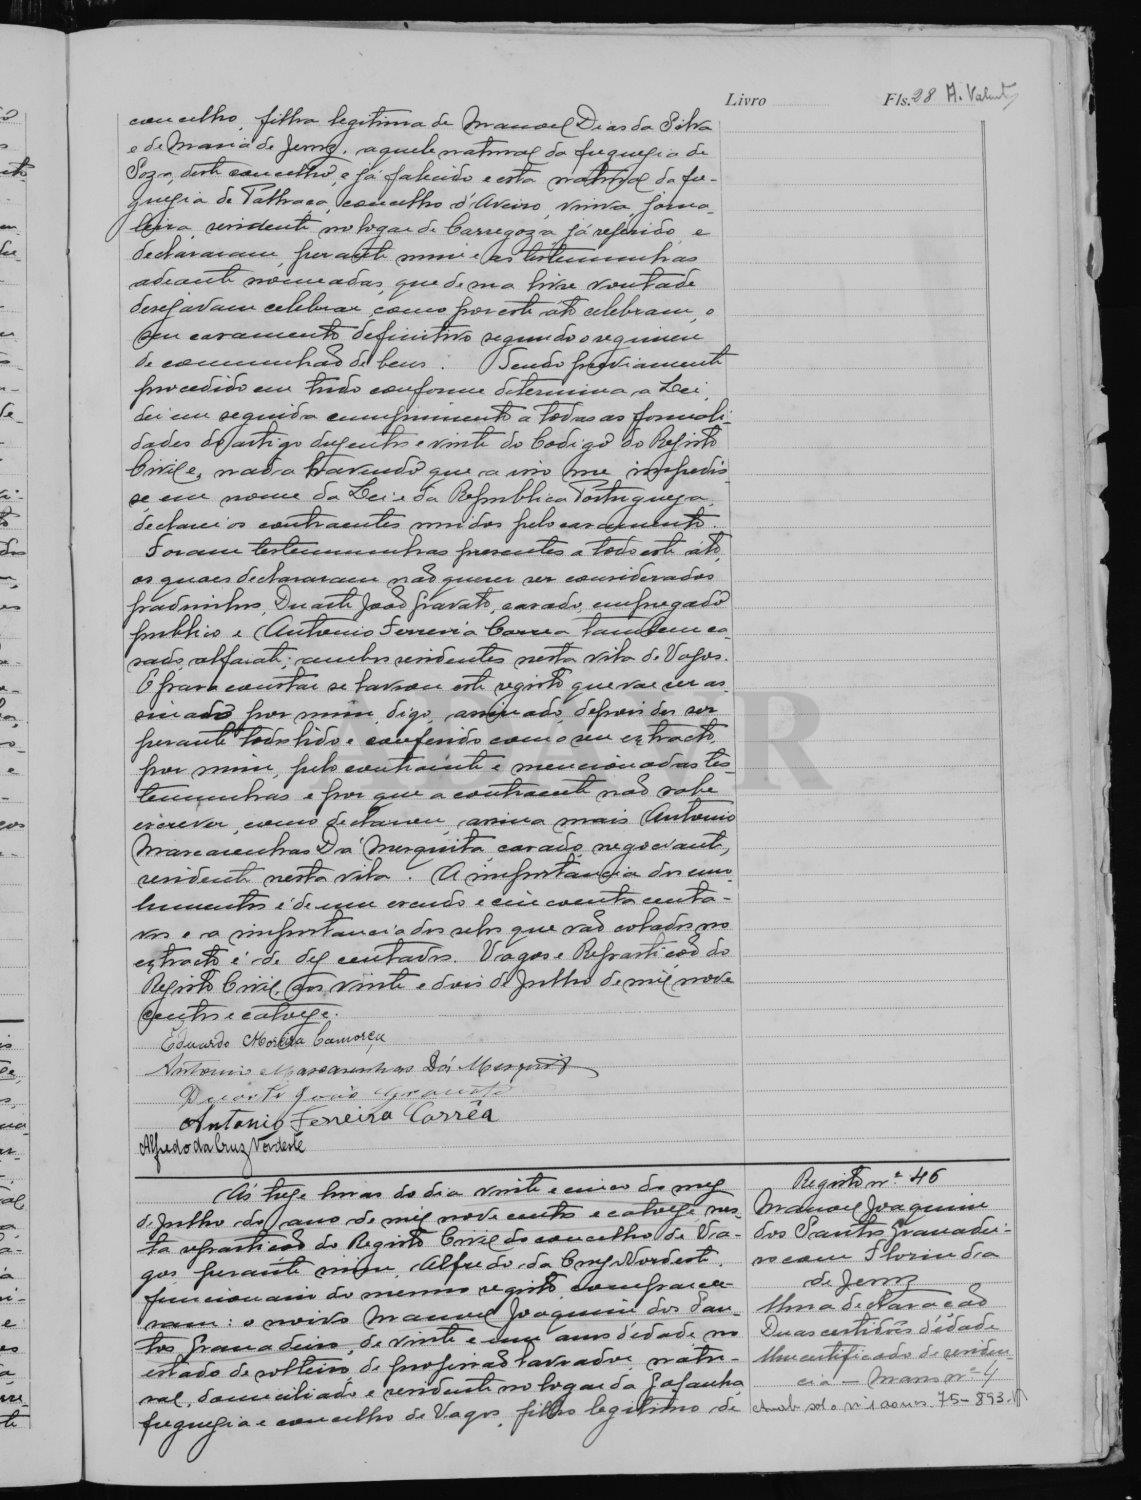 Livro Fls. 28 A. Valente
concelho, filha legitima de Manoel Dias da Silva
e de Maria de Jesus, aquele natural da freguezia de
Soza, deste concelho, e já falecido e esta natural da fre-
guezia de concelho d'Aveiro, viuva jorna-
leira, residente no logar de Carregoza, já referido, e
declararam perante mim e as testemunhas
adeante nomeadas, que de sua livre vontade
desejavam celebrar, como por este ato celebram, o
seu casamento definitivo segundo o regimen
de communhão de bens. Tendo previamente
procedido em tudo conforme determina a Lei,
dei em seguida cumprimento a todas as formali-
dades do artigo duzentos e vinte do Codigo do Registo
Civil e, nada havendo que a isso me impedis-
se, em nome da Lei e da Republica Portugueza
declarei os contraentes unidos pelo casamento.
Foram testemunhas presentes a todo este ato,
os quaes declararam não querer ser considerados
padrinhos, Duarte João Gravato, casado, empregado
publico e Antonio Ferreira Correa tambem ca-
sado, alfaiate; ambos residentes nesta vila de Vagos.
E para constar se lavrou este registo que vae ser as-
sinado por mim, digo, assinado, depois de ser
perante todos lido e conferido com o seu extracto,
por mim, pelo contraente e mencionadas tes-
temunhas e por que a contraente não sabe
escrever, como declarou, assina mais Antonio
Mascarenhas Dá Mesquita, casado, negociante,
residente nesta vila. A importancia dos emo-
lumentos é de um escudo e cincoenta centa-
vos e a importancia dos selos que vão colados no
extracto é de dez centavos. Vagos e Repartição do
Registo Civil, aos vinte e dois de Julho de mil nove
centos e catorze.
Eduardo Moreira
Antonio Mascarenhas Dá Mesquita
Duarte João Gravato
Antonio Ferreira Corrêa
Alfredo da Cruz Nordeste
Ás treze horas do dia vinte e cinco do mez
de Julho do ano de mil nove centos e catorze, nes-
ta repartição do Registo Civil do concelho de Va-
gos, perante mim, Alfredo da Cruz Nordeste,
funcionario do mesmo registo, comparece-
ram: o noivo Manoel Joaquim dos San-
tos Granadeiro, de vinte e um anos d'edade no
estado de solteiro, de profissão lavrador, natu-
ral, domiciliado e residente no logar da Gafanha,
freguezia e concelho de Vagos, filho legitimo de
Registo nº 46
Manoel Joaquim
dos Santos Granadei-
ro com Florinda
de Jesus
Uma declaração
Duas certidões d'edade
Um certificado de residen-
cia - Maço nº 4
75-893